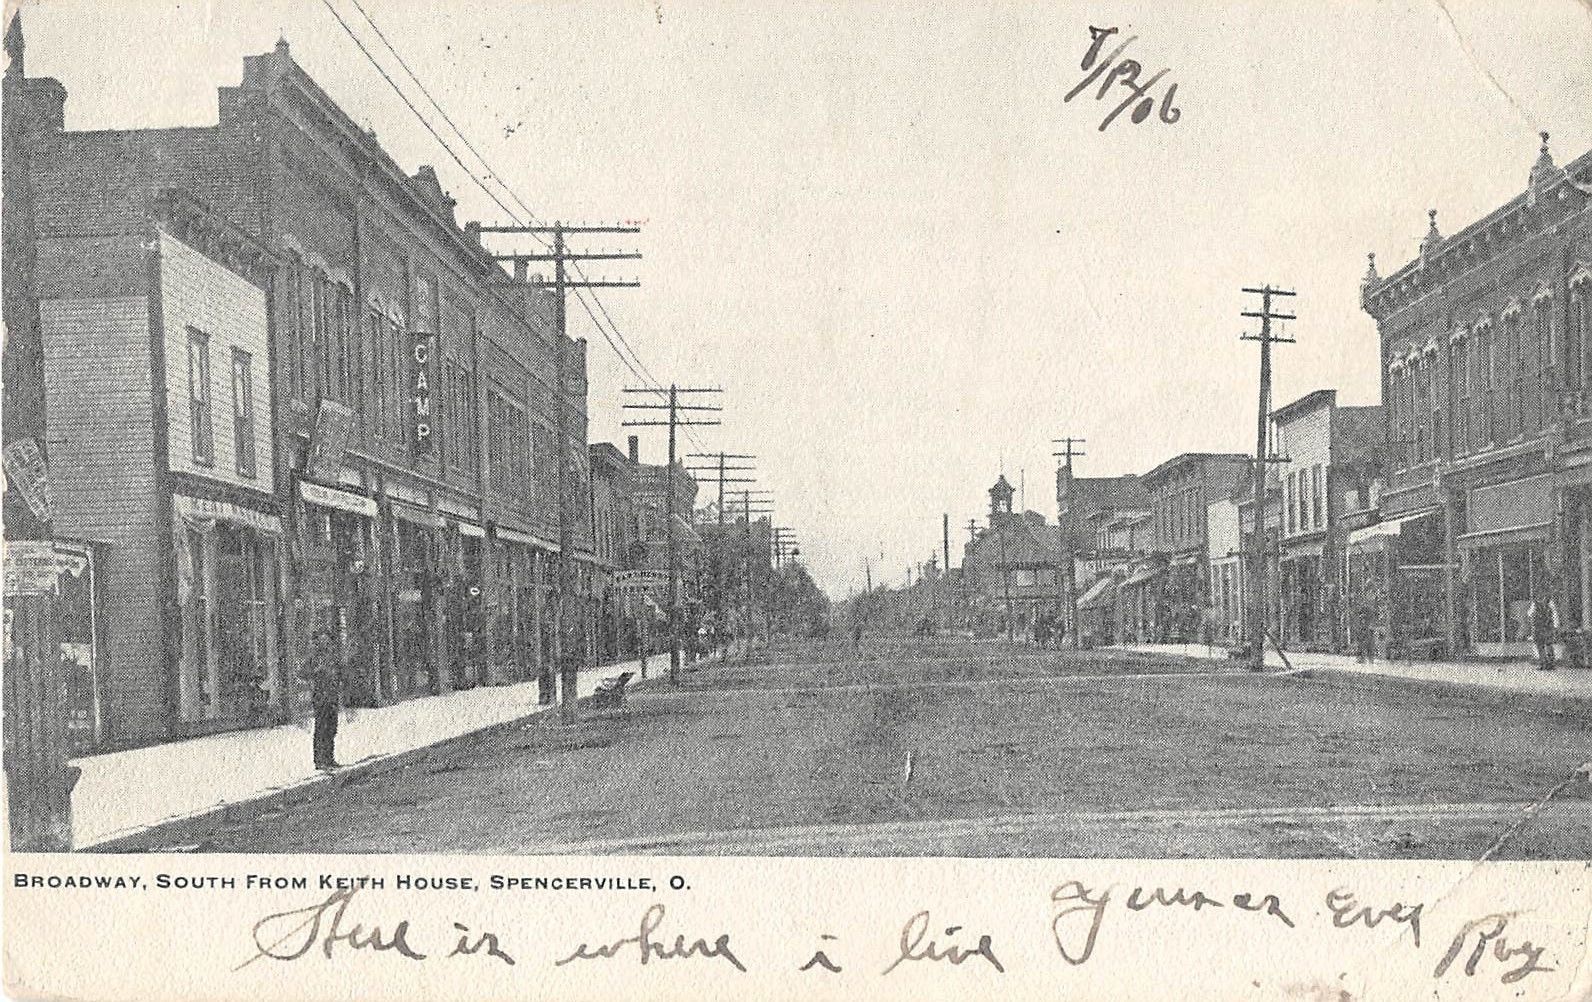 7/12/06
CAMP
BROADWAY, SOUTH FROM KEITH HOUSE, SPENCERVILLE, O.
Here is where i live yours as Ever Roy